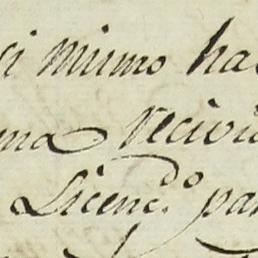 si mismo ha
ma recivi
Licenc.º par